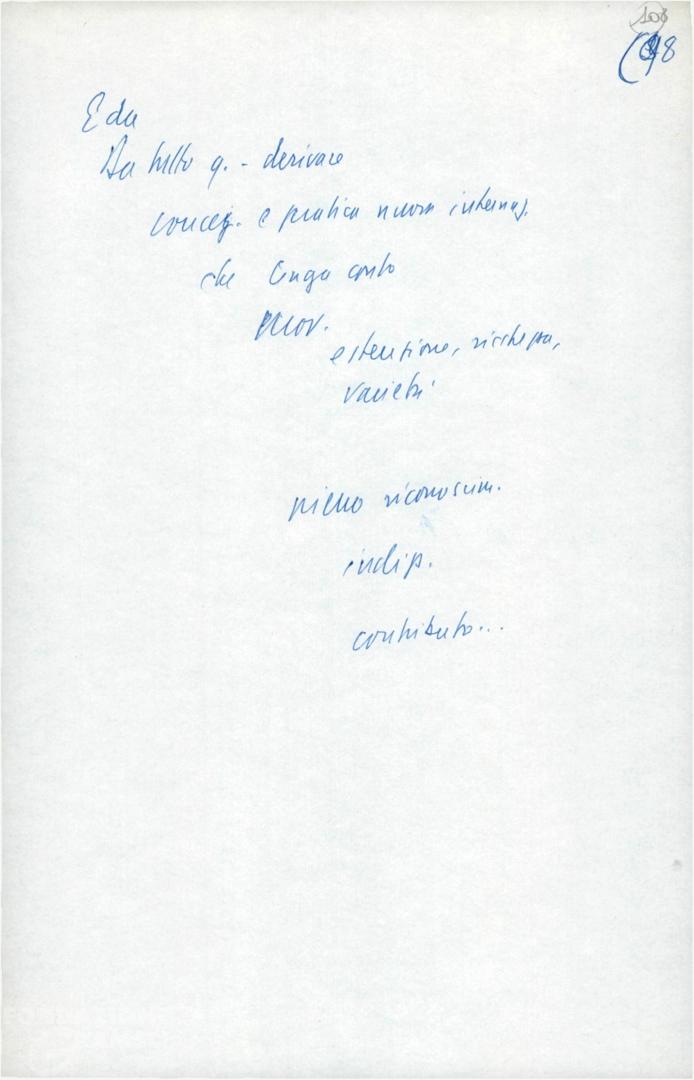 108
98
E da
Da tutto q. - derivare
concez. e pratica nuova internaz.
che tenga conto
mov.
estensione, ricchezza,
varietà
pieno riconoscim.
indip.
contributo...